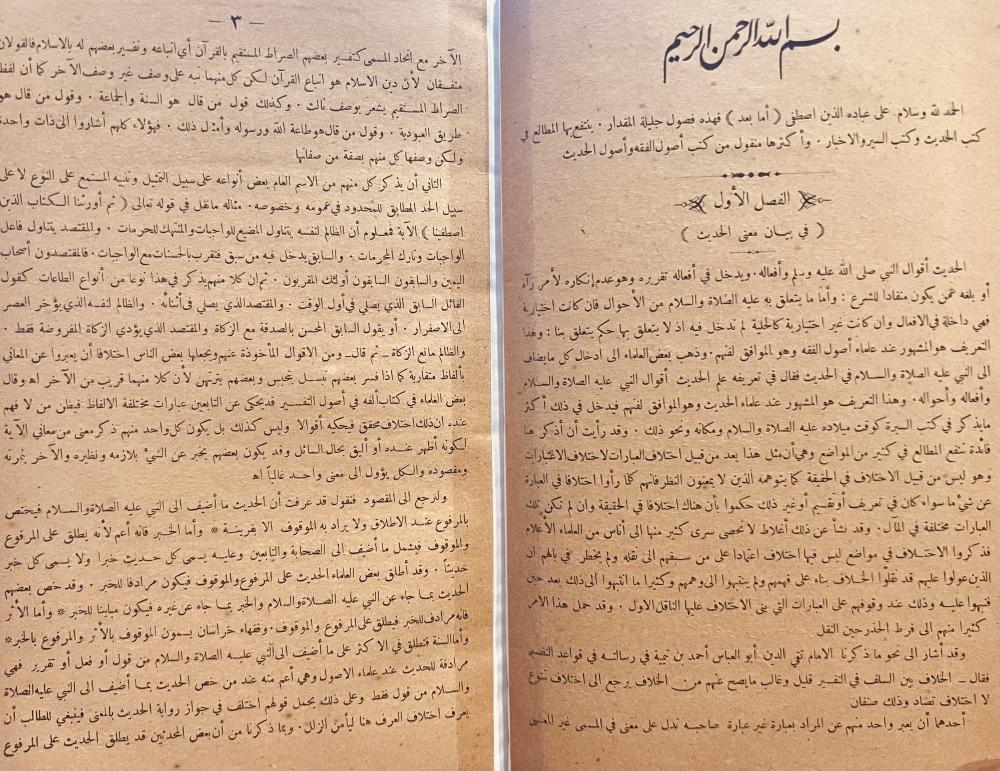 بسم الله الرحمن الرحيم
الحمد لله وسلام على عباده الذين اصطفى ( أما بعد ) فهذه فصول جليلة المقدار . ينتفع بها المطالع في
كتب الحديث وكتب السير والاخبار . وأكثرها منقول من كتب أصول الفقه وأصول الحديث
الفصل الأول
( في بيان معنى الحديث )
الحديث أقوال النبي صلى الله عليه وسلم وأفعاله . ويدخل في أفعاله تقريره وهو عدم إنكاره لأمر رآه
أو بلغه عمن يكون منقادا للشرع : وأما ما يتعلق به عليه الصلاة والسلام من الأحوال فان كانت اختيارية
فهي داخلة في الافعال وان كانت غير اختيارية كالحلية لم تدخل فيه اذ لا يتعلق بها حكم يتعلق بنا : وهذا
التعريف هو المشهور عند علماء أصول الفقه وهو الموافق لفنهم . وذهب بعض العلماء الى ادخال كل ما يضاف
الى النبي عليه الصلاة والسلام في الحديث فقال في تعريفه علم الحديث أقوال النبي عليه الصلاة والسلام
وأفعاله وأحواله . وهذا التعريف هو المشهور عند علماء الحديث وهو الموافق لفنهم فيدخل في ذلك أكثر
ما يذكر في كتب السيرة كوقت ميلاده عليه الصلاة والسلام ومكانه ونحو ذلك . وقد رأيت أن أذكر هنا
فائدة تنفع المطالع في كثير من المواضع وهي أن مثل هذا يعد من قبيل اختلاف العبارات لاختلاف الاعتبارات
وهو ليس من قبيل الاختلاف في الحقيقة كما يتوهمه الذين لا يمعنون النظر فانهم كلما رأوا اختلافا في العبارة
عن شيء ما سواء كان في تعريف أو تقسيم أو غير ذلك حكموا بأن هناك اختلافا في الحقيقة وان لم تكن تلك
العبارات مختلفة في المآل . وقد نشأ عن ذلك أغلاط لا تحصى سرى كثير منها الى أناس من العلماء الأعلام
فذكروا الاختلاف في مواضع ليس فيها اختلاف اعتمادا على من سبقهم الى نقله ولم يخطر في بالهم أن
الذين عولوا عليهم قد نقلوا الخلاف بناء على فهمهم ولم ينتبهوا الى وهمهم وكثيرا ما انتبهوا الى ذلك بعد حين
فنبهوا عليه وذلك عند وقوفهم على العبارات التي بنى الاختلاف عليها الناقل الاول . وقد حمل هذا الامر
كثيرا منهم الى فرط الحذر حين النقل
وقد أشار الى نحو ما ذكرنا الامام تقي الدين أبو العباس أحمد بن تيمية في رسالته في قواعد التفسير
فقال ــ الخلاف بين السلف في التفسير قليل وغالب ما يصح عنهم من الخلاف يرجع الى اختلاف تنوع
لا اختلاف تضاد وذلك صنفان
أحدهما أن يعبر واحد منهم عن المراد بعبارة غير عبارة صاحبه تدل على معنى في المسمى غير المعنى
— ٣ —
الآخر مع اتحاد المسمى كتفسير بعضهم الصراط المستقيم بالقرآن أي اتباعه وتفسير بعضهم له بالاسلام فالقولان
متفقان لأن دين الاسلام هو اتباع القرآن لكن كل منهما نبه على وصف غير وصف الآخر كما أن لفظ
الصراط المستقيم يشعر بوصف ثالث . وكذلك قول من قال هو السنة والجماعة . وقول من قال هو
طريق العبودية . وقول من قال هو طاعة الله ورسوله وأمثال ذلك . فهؤلاء كلهم أشاروا الى ذات واحدة
ولكن وصفها كل منهم بصفة من صفاتها
الثاني أن يذكر كل منهم من الاسم العام بعض أنواعه على سبيل التمثيل وتنبيه المستمع على النوع لا على
سبيل الحد المطابق للمحدود في عمومه وخصوصه . مثاله ما نقل في قوله تعالى ( ثم أورثنا الكتاب الذين
اصطفينا ) الآية فمعلوم أن الظالم لنفسه يتناول المضيع للواجبات والمنتهك للحرمات . والمقتصد يتناول فاعل
الواجبات وتارك المحرمات . والسابق يدخل فيه من سبق فتقرب بالحسنات مع الواجبات . فالمقتصدون أصحاب
اليمين والسابقون السابقون أولئك المقربون . ثم ان كلا منهم يذكر في هذا نوعا من أنواع الطاعات كقول
القائل السابق الذي يصلي في أول الوقت . والمقتصد الذي يصلي في أثنائه . والظالم لنفسه الذي يؤخر العصر
الى الاصفرار . أو يقول السابق المحسن بالصدقة مع الزكاة والمقتصد الذي يؤدي الزكاة المفروضة فقط .
والظالم مانع الزكاة ــ ثم قال ــ ومن الاقوال المأخوذة عنهم ويجعلها بعض الناس اختلافا أن يعبروا عن المعاني
بألفاظ متقاربة كما اذا فسر بعضهم تبسل بتحبس وبعضهم بترتهن لأن كلا منهما قريب من الآخر اه وقال
بعض العلماء في كتاب ألفه في أصول التفسير قد يحكى عن التابعين عبارات مختلفة الالفاظ فيظن من لا فهم
عنده ان ذلك اختلاف محقق فيحكيه أقوالا وليس كذلك بل يكون كل واحد منهم ذكر معنى من معاني الآية
لكونه أظهر عنده أو أليق بحال السائل وقد يكون بعضهم يخبر عن الشيء بلازمه ونظيره والآخر بثمرته
ومقصوده والكل يؤول الى معنى واحد غالبا اه
ولنرجع الى المقصود فنقول قد عرفت أن الحديث ما أضيف الى النبي عليه الصلاة والسلام فيختص
بالمرفوع عند الاطلاق ولا يراد به الموقوف الا بقرينة * وأما الخبر فانه أعم لأنه يطلق على المرفوع
والموقوف فيشمل ما أضيف الى الصحابة والتابعين وعليه يسمى كل حديث خبرا ولا يسمى كل خبر
حديثا . وقد أطلق بعض العلماء الحديث على المرفوع والموقوف فيكون مرادفا للخبر . وقد خص بعضهم
الحديث بما جاء عن النبي عليه الصلاة والسلام والخبر بما جاء عن غيره فيكون مباينا للخبر * وأما الأثر
فانه مرادف للخبر فيطلق على المرفوع والموقوف . وفقهاء خراسان يسمون الموقوف بالأثر والمرفوع بالخبر *
وأما السنة فتطلق في الاكثر على ما أضيف الى النبي عليه الصلاة والسلام من قول أو فعل أو تقرير فهي
مرادفة للحديث عند علماء الاصول وهي أعم منه عند من خص الحديث بما أضيف الى النبي عليه الصلاة
والسلام من قول فقط وعلى ذلك يحمل قولهم اختلف في جواز رواية الحديث بالمعنى فينبغي للطالب أن
يعرف اختلاف العرف هنا ليأمن الزلل . وبما ذكرنا من أن بعض المحدثين قد يطلق الحديث على المرفوع